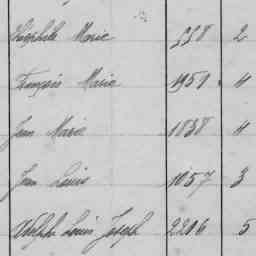 Théophile Marie 558 2
François Marie 1951 4
Jean Marie 1838 4
Jean Louis 1057 3
Adolphe Louis Joseph 2206 5